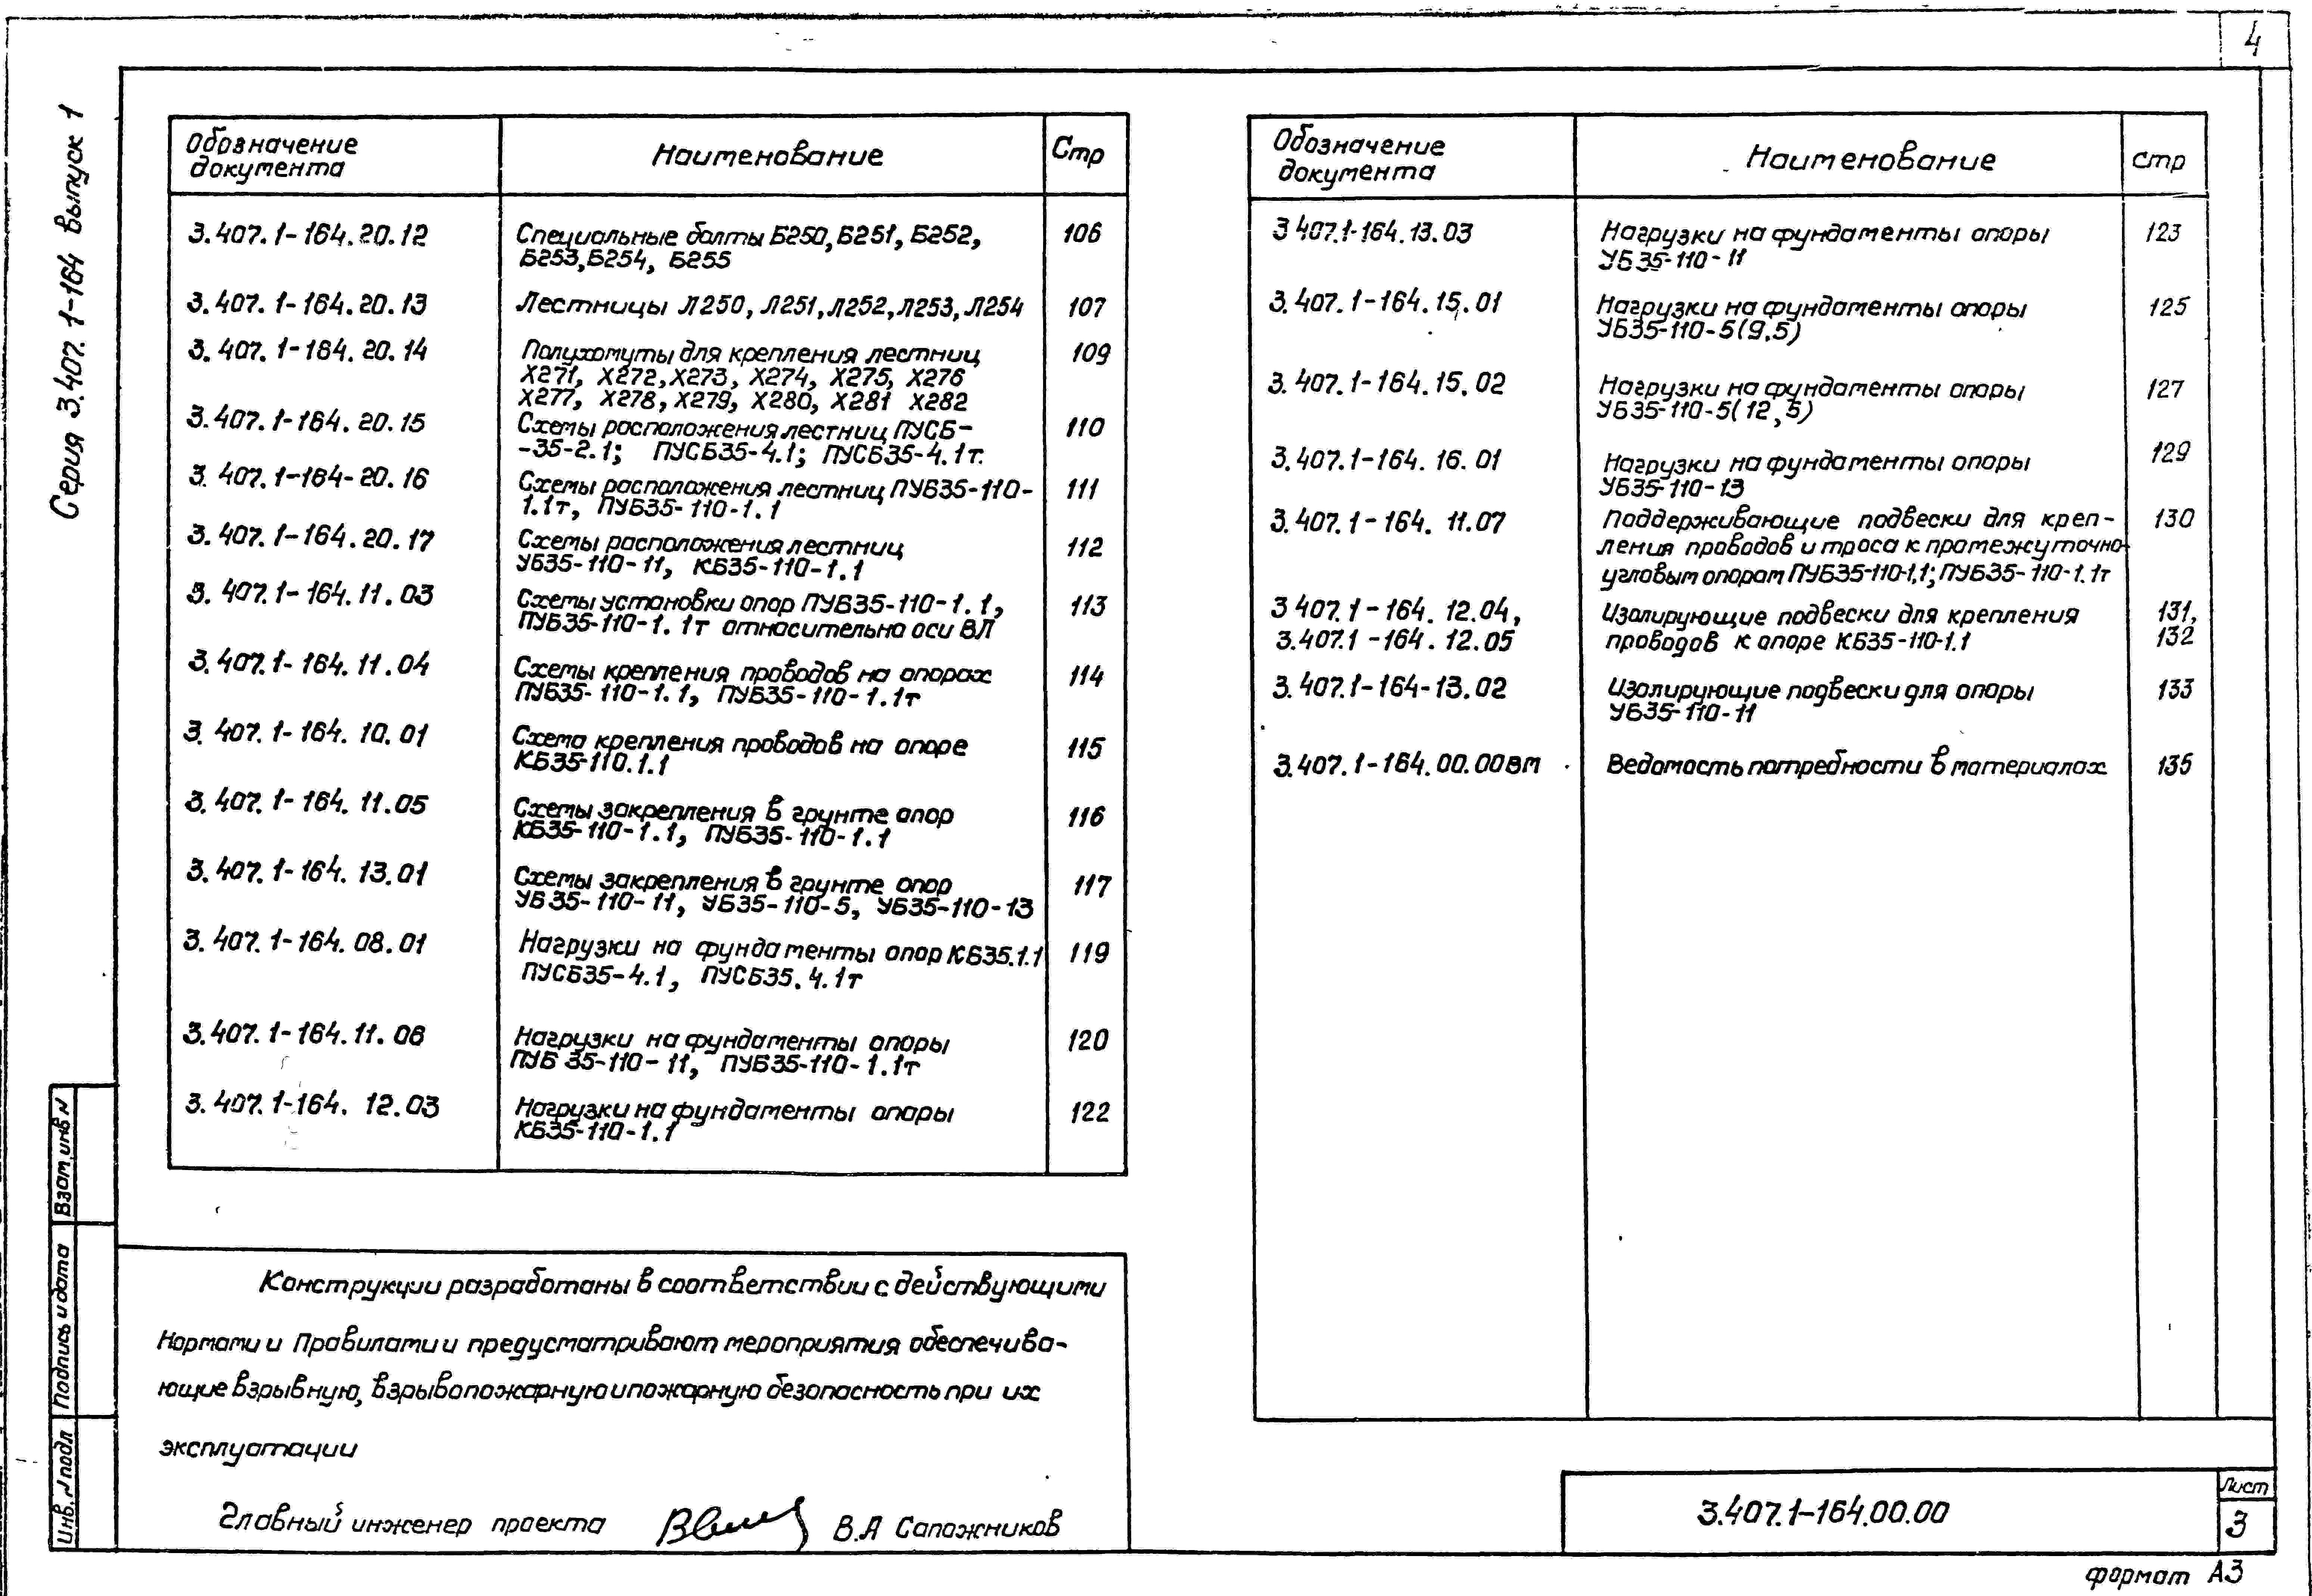 4
Серия 3.407.1-164 Выпуск 1
Обозначение
документа
Наименование
Стр
3.407.1-164.20.12
Специальные болты Б250, Б251, Б252,
Б253, Б254, Б255
106
3.407.1-164.20.13
Лестницы Л250, Л251, Л252, Л253, Л254
107
3.407.1-164.20.14
Полухомуты для крепления лестниц
Х271, Х272, Х273, Х274, Х275, Х276
Х277, Х278, Х279, Х280, Х281 Х282
109
3.407.1-164.20.15
Схемы расположения лестниц ПУСБ-
-35-2.1; ПУСБ35-4.1; ПУСБ35-4.1т.
110
3.407.1-164-20.16
Схемы расположения лестниц ПУБ35-110-
1.1т, ПУБ35-110-1.1
111
3.407.1-164.20.17
Схемы расположения лестниц
УБ35-110-11, КБ35-110-1.1
112
3.407.1-164.11.03
Схемы установки опор ПУБ35-110-1.1,
ПУБ35-110-1.1т относительно оси ВЛ
113
3.407.1-164.11.04
Схемы крепления проводов на опорах
ПУБ35-110-1.1, ПУБ35-110-1.1т
114
3.407.1-164.10.01
Схема крепления проводов на опоре
КБ35-110.1.1
115
3.407.1-164.11.05
Схемы закрепления в грунте опор
КБ35-110-1.1, ПУБ35-110-1.1
116
3.407.1-164.13.01
Схемы закрепления в грунте опор
УБ35-110-11, УБ35-110-5, УБ35-110-13
117
3.407.1-164.08.01
Нагрузки на фундаменты опор КБ35.1.1
ПУСБ35-4.1, ПУСБ35.4.1т
119
3.407.1-164.11.06
Нагрузки на фундаменты опоры
ПУБ 35-110-11, ПУБ35-110-1.1т
120
3.407.1-164.12.03
Нагрузки на фундаменты опоры
КБ35-110-1.1
122
Обозначение
документа
Наименование
стр
3 407.1-164.13.03
Нагрузки на фундаменты опоры
УБ35-110-11
123
3.407.1-164.15.01
Нагрузки на фундаменты опоры
УБ35-110-5(9,5)
125
3.407.1-164.15.02
Нагрузки на фундаменты опоры
УБ35-110-5(12,5)
127
3.407.1-164.16.01
Нагрузки на фундаменты опоры
УБ35-110-13
129
3.407.1-164.11.07
Поддерживающие подвески для креп-
ления проводов и троса к промежуточно-
угловым опорам ПУБ35-110-1,1; ПУБ35-110-1.1т
130
3 407.1-164.12.04,
3.407.1-164.12.05
Изолирующие подвески для крепления
проводов к опоре КБ35-110-1.1
131,
132
3.407.1-164-13.02
Изолирующие подвески для опоры
УБ35-110-11
133
3.407.1-164.00.00ВМ
Ведомость потребности в материалах
135
Конструкции разработаны в соответствии с действующими
Нормами и Правилами и предусматривают мероприятия обеспечива-
ющие взрывную, взрывопожарную и пожарную безопасность при их
эксплуатации
Главный инженер проекта В.А Сапожников
Взам инв N
Подпись и дата
Инв. N подл
3.407.1-164.00.00
Лист
3
формат А3